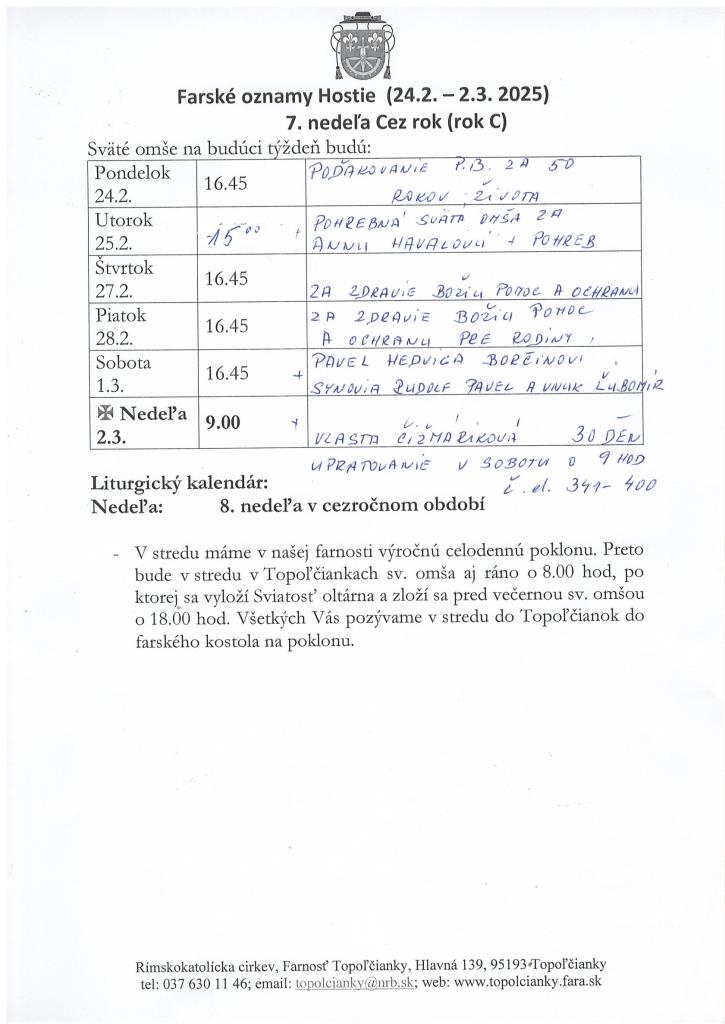 Farské oznamy Hostie (24.2. – 2.3. 2025)
7. nedeľa Cez rok (rok C)
Sväté omše na budúci týždeň budú:
Pondelok 24.2. 16.45 POĎAKOVANIE P.B. ZA 50
ROKOV ŽIVOTA
Utorok 25.2. 15⁰⁰ + POHREBNÁ SVÄTÁ OMŠA ZA
ANNU HAVALOVÚ + POHREB
Štvrtok 27.2. 16.45 ZA ZDRAVIE BOŽIU POMOC A OCHRANU
Piatok 28.2. 16.45 ZA ZDRAVIE BOŽIU POMOC
A OCHRANU PRE RODINY
Sobota 1.3. 16.45 + PAVEL HEDVIGA BORČINOVI
SYNOVIA RUDOLF PAVEL A VNUK ĽUBOMÍR
✠ Nedeľa 2.3. 9.00 + VLASTA ČIŽMÁRIKOVÁ 30 DEŇ
UPRATOVANIE V SOBOTU O 9 HOD
Liturgický kalendár: č.d. 341-400
Nedeľa: 8. nedeľa v cezročnom období
- V stredu máme v našej farnosti výročnú celodennú poklonu. Preto
bude v stredu v Topoľčiankach sv. omša aj ráno o 8.00 hod, po
ktorej sa vyloží Sviatosť oltárna a zloží sa pred večernou sv. omšou
o 18.00 hod. Všetkých Vás pozývame v stredu do Topoľčianok do
farského kostola na poklonu.
Rímskokatolícka cirkev, Farnosť Topoľčianky, Hlavná 139, 95193 Topoľčianky
tel: 037 630 11 46; email: topolcianky@nrb.sk; web: www.topolcianky.fara.sk